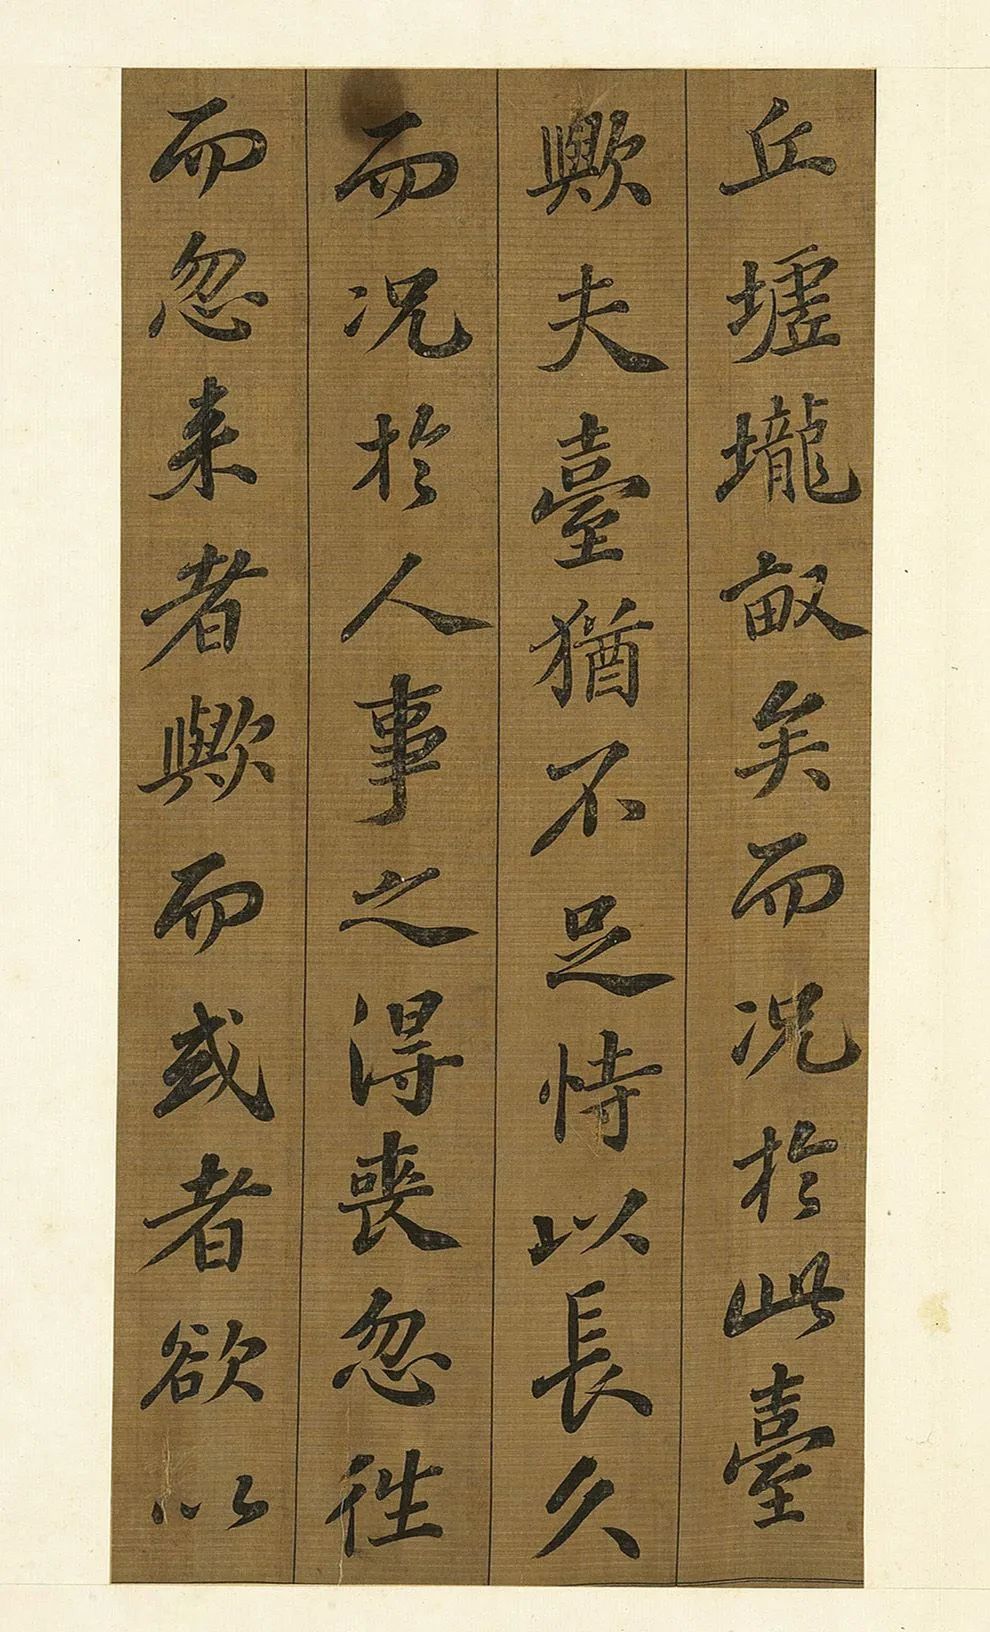 丘墟壠畝矣而况於此臺
歟夫臺猶不足恃以長久
而况於人事之得喪忽往
而忽来者歟而或者欲以